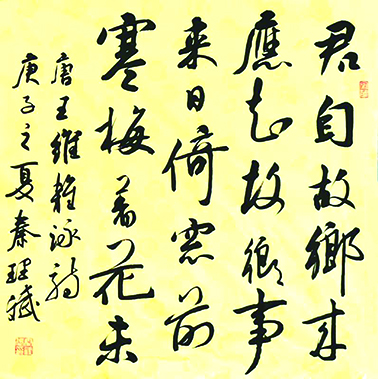 君自故鄉来
應知故鄉事
来日倚窓前
寒梅著花未
唐王維雜詠詩
庚子之夏秦理